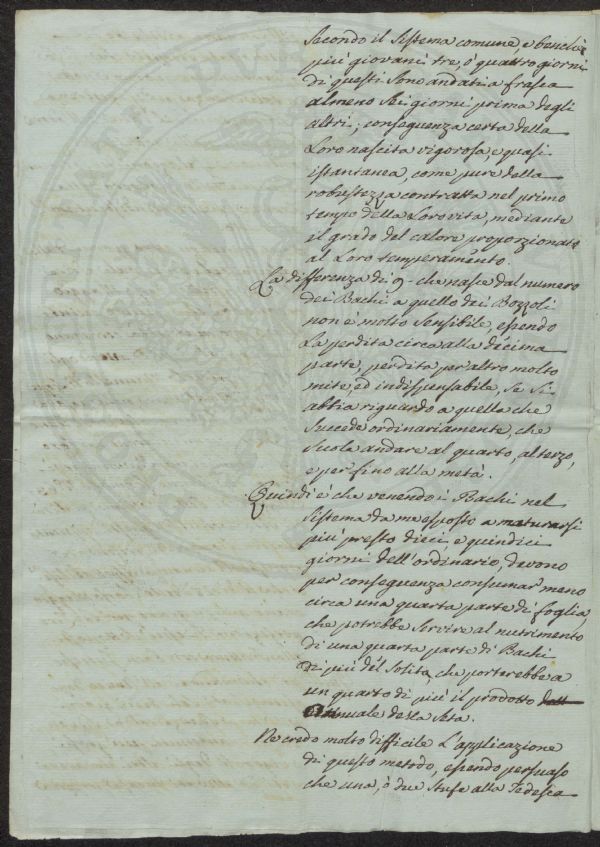 Secondo il Sistema comune, e benchè
più giovani tre, ò quattro giorni
di questi Sono andati a frasca
almeno Sei giorni prima degli
altri; conseguenza certa della
Loro nascita vigorosa, e quasi
istantanea, come pure della
robustezza contratta nel primo
tempo della Loro vita, mediante
il grado del calore proporzionato
al Loro temperamento.
La differenza di 9 - che nasce dal numero
dei Bachi a quello dei Bozzoli
non è molto Sensibile, essendo
La perdita circa alla decima
parte, perdita per altro molto
mite, ed indispensabile, Se Si
abbia riguardo a quella che
Succede ordinariamente, che
Suola andare al quarto, al terzo,
e per fino alla metà.
Quindi è che venendo i Bachi nel
Sistema da me esposto a maturarsi
più presto dieci e quindici
giorni dell'ordinario, devono
per conseguenza consumar meno
circa una quarta parte di foglia,
che potrebbe Servire al nutrimento
di una quarta parte di Bachi
di più del Solito, che porterebbe a
un quarto di più il prodotto
annuale della Seta.
Ne credo molto difficile L'applicazione
di questo metodo, essendo persuaso
che una, ò due Stufe alla Tedesca